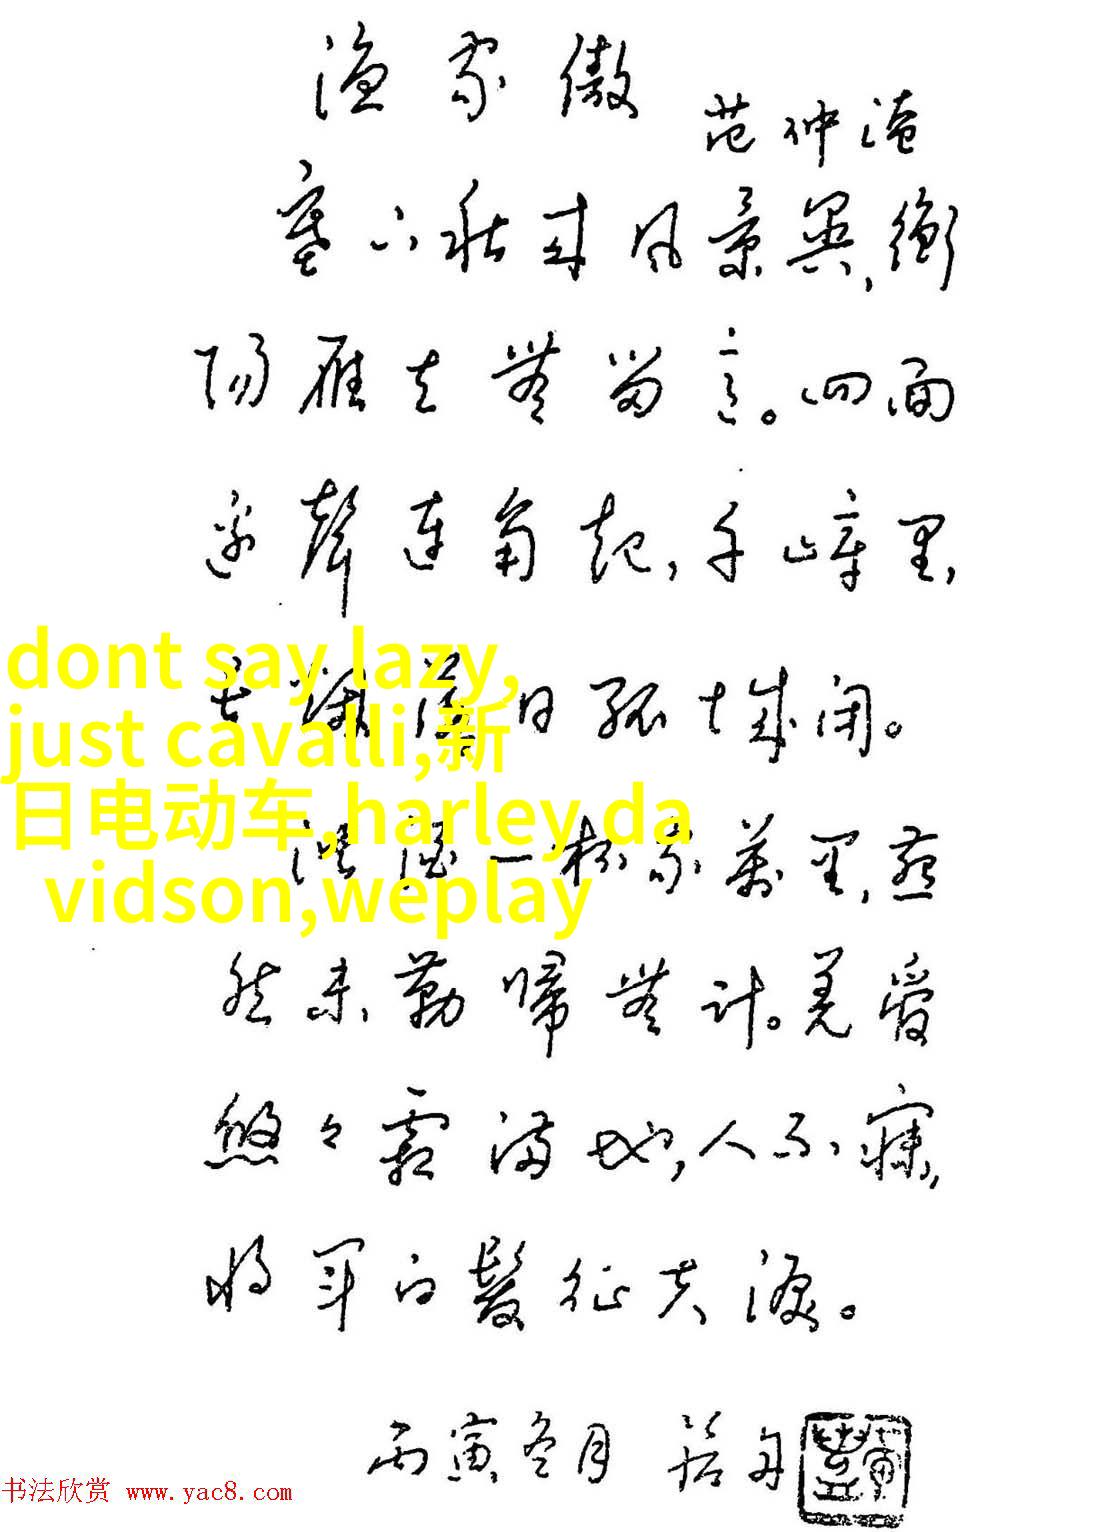 渔家傲
范仲淹
塞下秋来风景异,衡
阳雁去無留意。四面
边聲连角起,千嶂里,
长烟落日孤城闭。
浊酒一杯家萬里,燕
然未勒歸無计。羌管
悠々霜满地,人不寐,
将军白髮征夫淚。
丙寅冬月 若舟
dont say lazy,
just cavalli,新
日电动车,harley da
vidson,weplay
书法欣赏 www.yac8.com